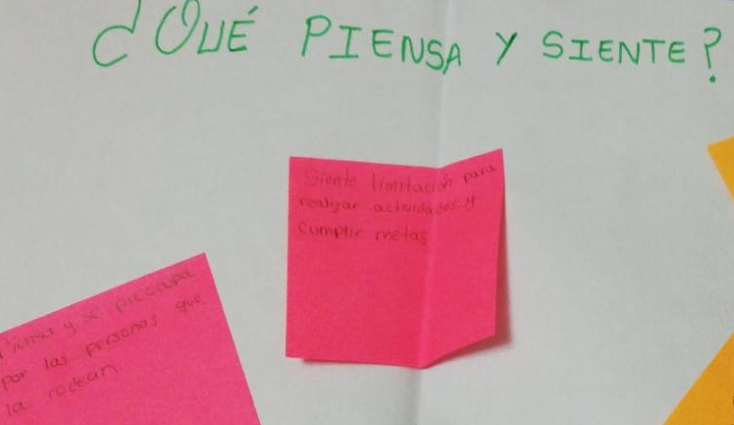 ¿QUÉ PIENSA Y SIENTE?
Siente limitación para
realizar actividades y
cumplir metas
Piensa y se preocupa
por las personas que
la rodean